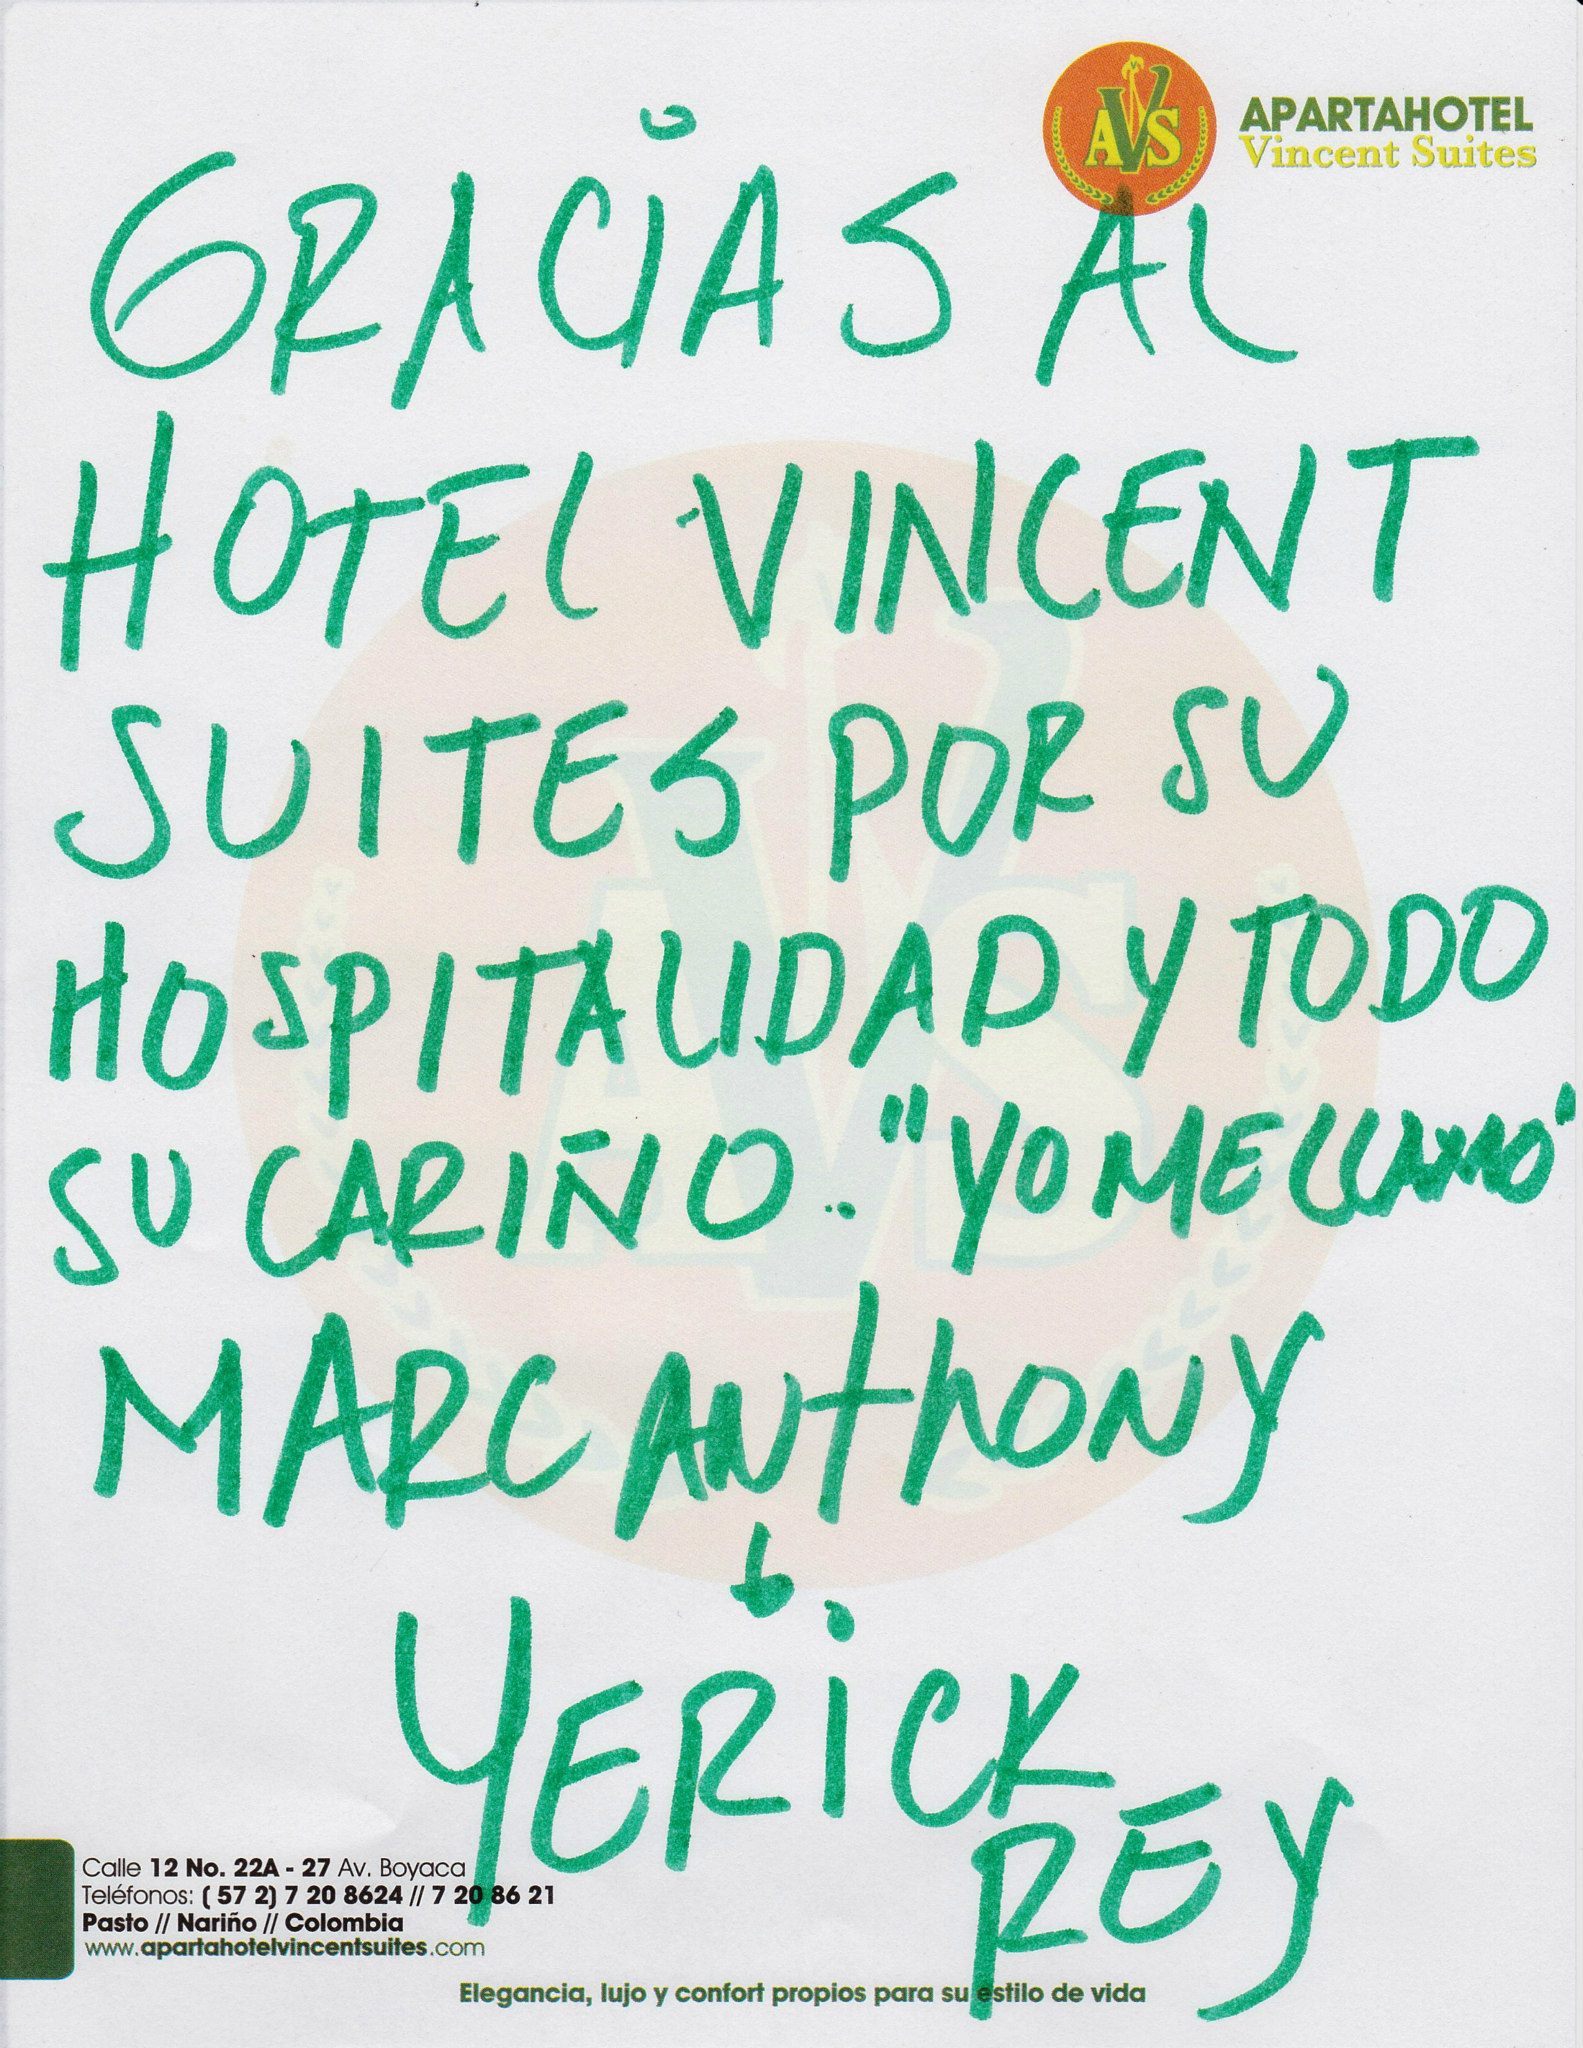 AVS
APARTAHOTEL
Vincent Suites
GRACIAS AL
HOTEL VINCENT
SUITES POR SU
HOSPITALIDAD Y TODO
SU CARIÑO.. "YO ME LLAMO"
MARC ANthONY
YERiCK
REY
Calle 12 No. 22A - 27 Av. Boyaca
Teléfonos: ( 57 2) 7 20 8624 // 7 20 86 21
Pasto // Nariño // Colombia
www.apartahotelvincentsuites.com
Elegancia, lujo y confort propios para su estilo de vida